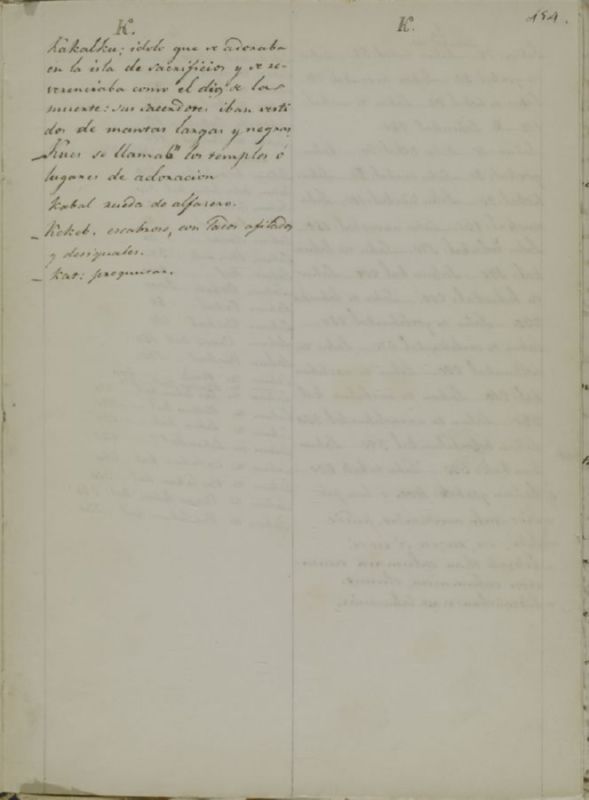 K.
K.
454.
Kakalku; idolo que se adoraba
en la isla de sacrificios y se re-
verenciaba como el dios de la
muerte: sus sacerdotes iban verti
dos de mantas largas y negras
Kues se llamabn los templos ó
lugares de adoracion
Kabal rueda de alfarero.
Kekeb. escabroso, con Tacos afilados
y desiguales.
Kat: preguntar.